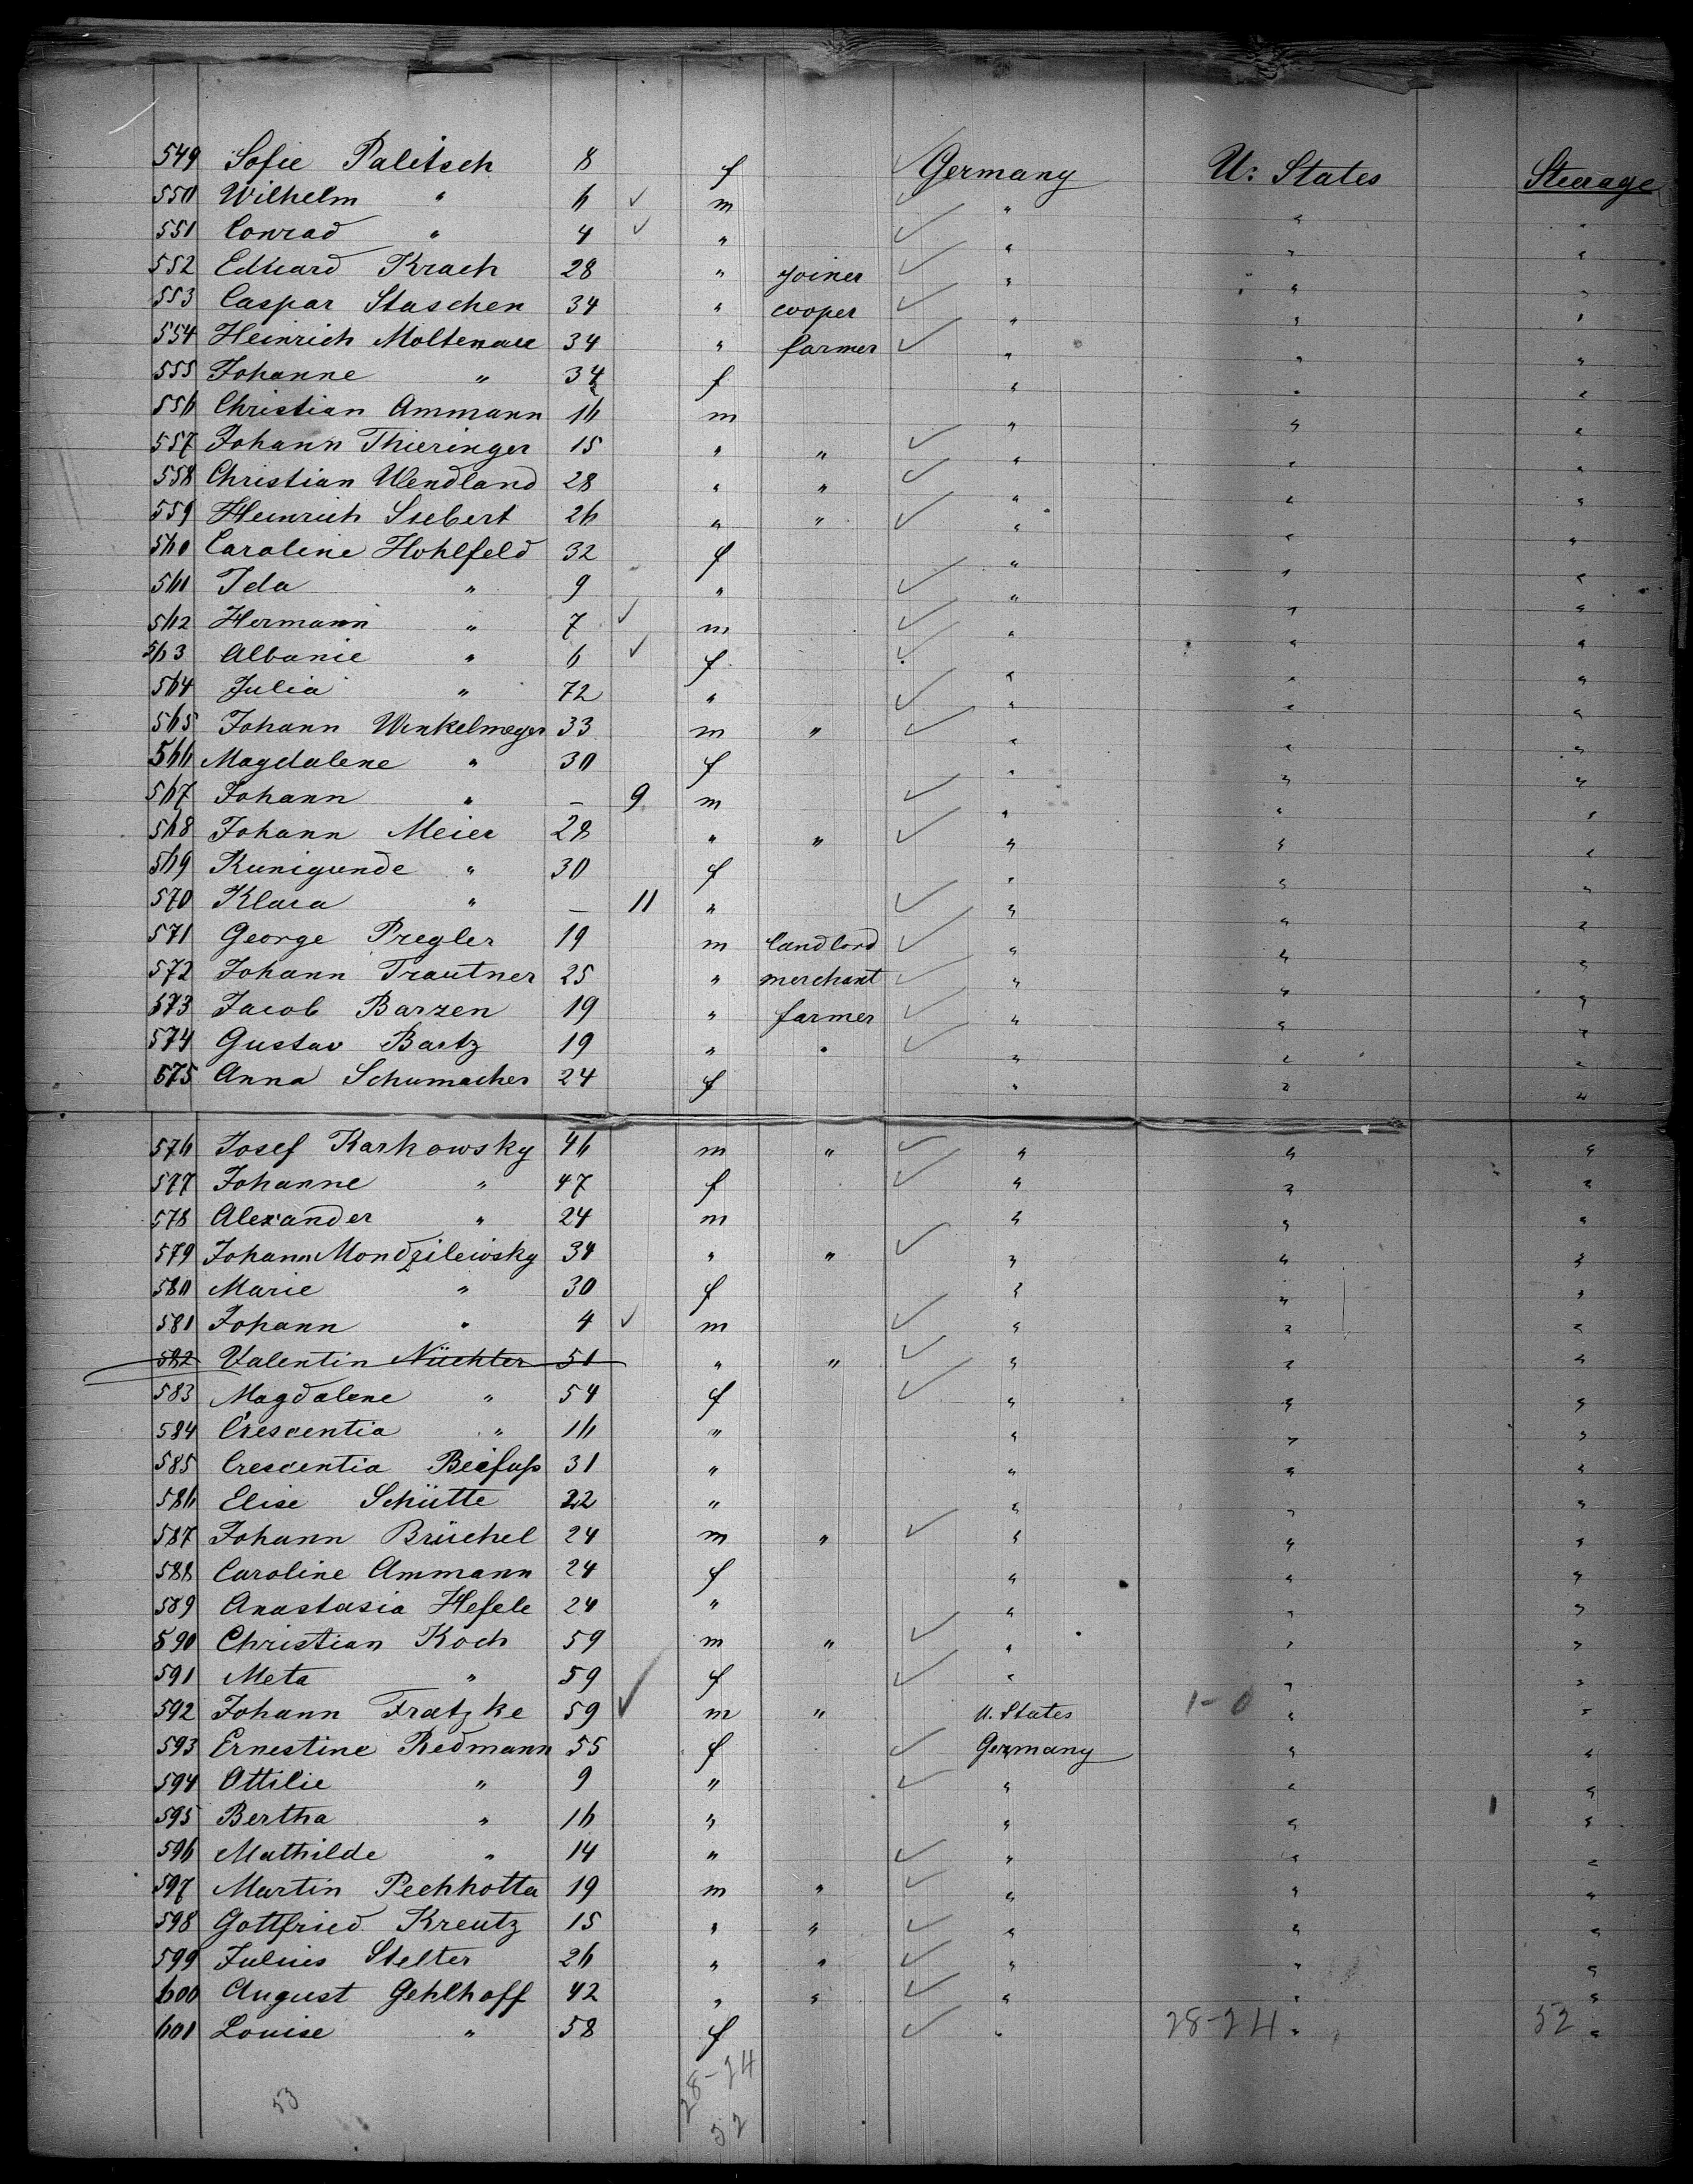 549 Sofie Palitsch 8 f Germany U: States Steerage
550 Wilhelm " 6 ✓ m ✓ " " "
551 Conrad " 4 ✓ " ✓ " " "
552 Eduard Krach 28 " joiner ✓ " " "
553 Caspar Staschen 34 " cooper ✓ " " "
554 Heinrich 34 " farmer ✓ " " "
555 Johanne " 34 f " " "
556 Christian Ammann 16 m " " "
557 Johann Thieringer 15 " " ✓ " " "
558 Christian Wendland 28 " " ✓ " " "
559 Heinrich Siebert 26 " " ✓ " " "
560 Caroline Hohlfeld 32 f " " "
561 Ida " 9 " ✓ " " "
562 Hermann " 7 ✓ m ✓ " " "
563 Albanie " 6 ✓ f ✓ " " "
564 Julia " 72 " ✓ " " "
565 Johann Winkelmeyer 33 m " ✓ " " "
566 Magdalene " 30 f " " "
567 Johann " — 9 m ✓ " " "
568 Johann Meier 28 " " ✓ " " "
569 Kunigunde " 30 f " " "
570 Klara " — 11 " ✓ " " "
571 George Pregler 19 m landlord ✓ " " "
572 Johann Trautner 25 " merchant ✓ " " "
573 Jacob Barzen 19 " farmer ✓ " " "
574 Gustav Bartz 19 " " ✓ " " "
575 Anna Schumacher 24 f " " "
576 Josef Karkowsky 46 m " ✓ " " "
577 Johanne " 47 f ✓ " " "
578 Alexander " 24 m " " "
579 Johann Mondzilewsky 34 " " ✓ " " "
580 Marie " 30 f " " "
581 Johann " 4 ✓ m ✓ " " "
582 Valentin Nüchter 51 " " ✓ " " "
583 Magdalene " 54 f ✓ " " "
584 Crescentia " 16 " " " "
585 Crescentia Beifuß 31 " " " "
586 Elise Schütte 22 " " " "
587 Johann Brüchel 24 m " ✓ " " "
588 Caroline Ammann 24 f " " "
589 Anastasia Hefele 24 " " " "
590 Christian Koch 59 m " ✓ " " "
591 Meta " 59 f ✓ " " "
592 Johann Fratzke 59 ✓ m " U. States 1-0 " "
593 Ernestine Redmann 55 f ✓ Germany " "
594 Ottilie " 9 " ✓ " " "
595 Bertha " 16 " " " "
596 Mathilde " 14 " ✓ " " "
597 Martin Pechhotta 19 m " ✓ " " "
598 Gottfried Kreutz 15 " " ✓ " " "
599 Julius Stelter 26 " " ✓ " " "
600 August Gehlhoff 42 " " ✓ " " "
601 Louise " 58 f ✓ " 28-24 " 52 "
53 28-24
52